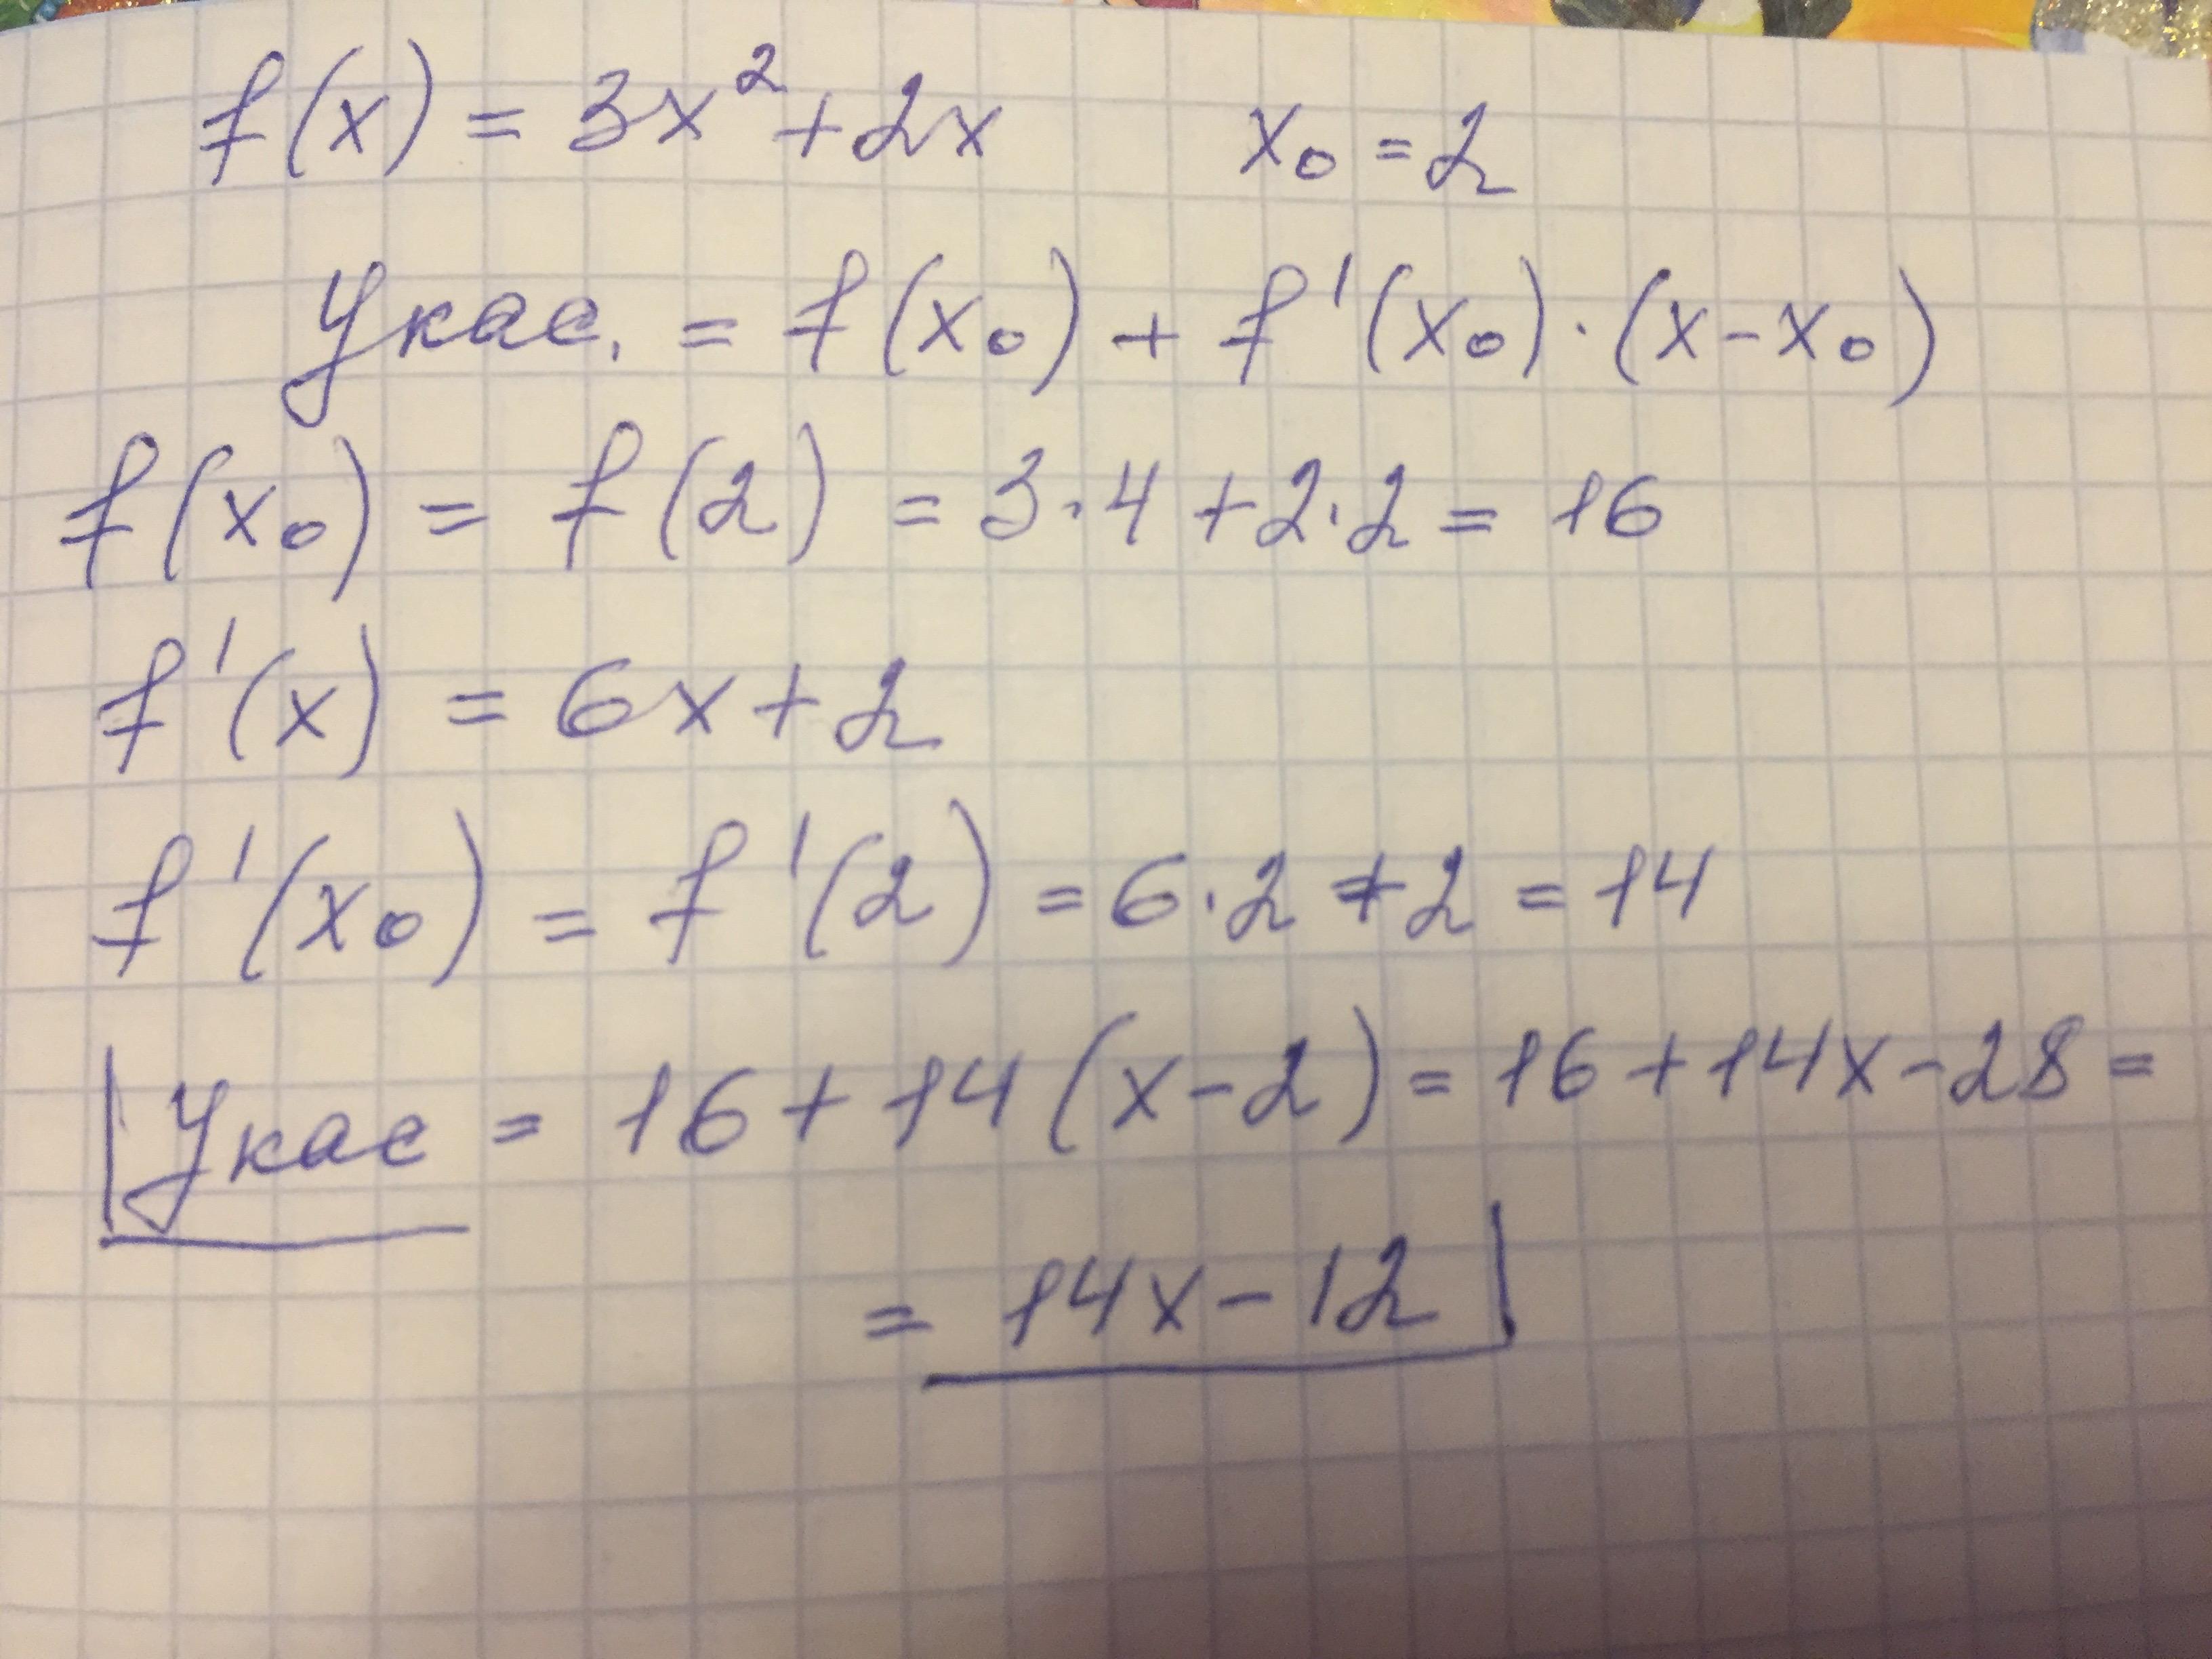 f(x) = 3x² + 2x x₀ = 2
Yкас. = f(x₀) + f'(x₀)·(x - x₀)
f(x₀) = f(2) = 3·4 + 2·2 = 16
f'(x) = 6x + 2
f'(x₀) = f'(2) = 6·2 + 2 = 14
Yкас = 16 + 14(x - 2) = 16 + 14x - 28 =
= 14x - 12